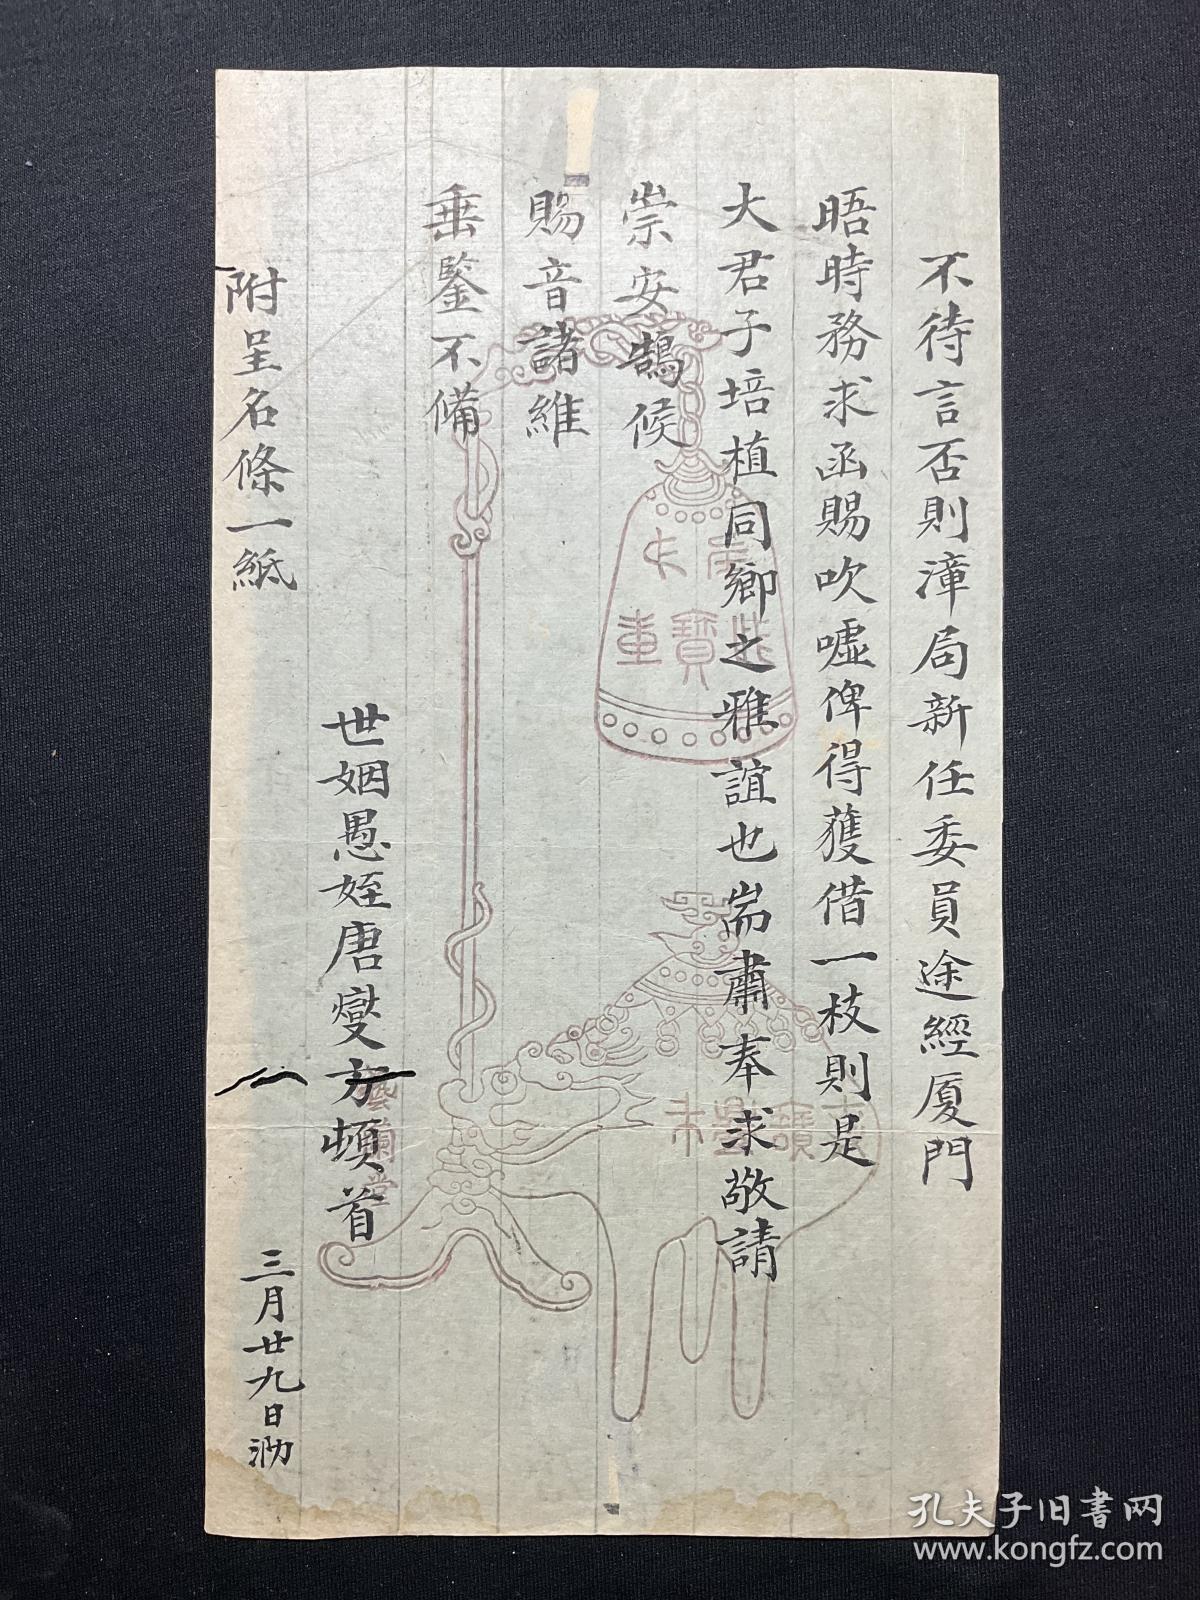 不待言否則漳局新任委員途經廈門
晤時務求函賜吹噓俾得獲借一枝則是
大君子培植同鄉之雅誼也耑肅奉求敬請
崇安鵠候
賜音諸維
垂鑒不備
世姻愚姪唐燮方頓首
附呈名條一紙
三月廿九日泐
藝蘭堂
孔夫子旧书网
www.kongfz.com